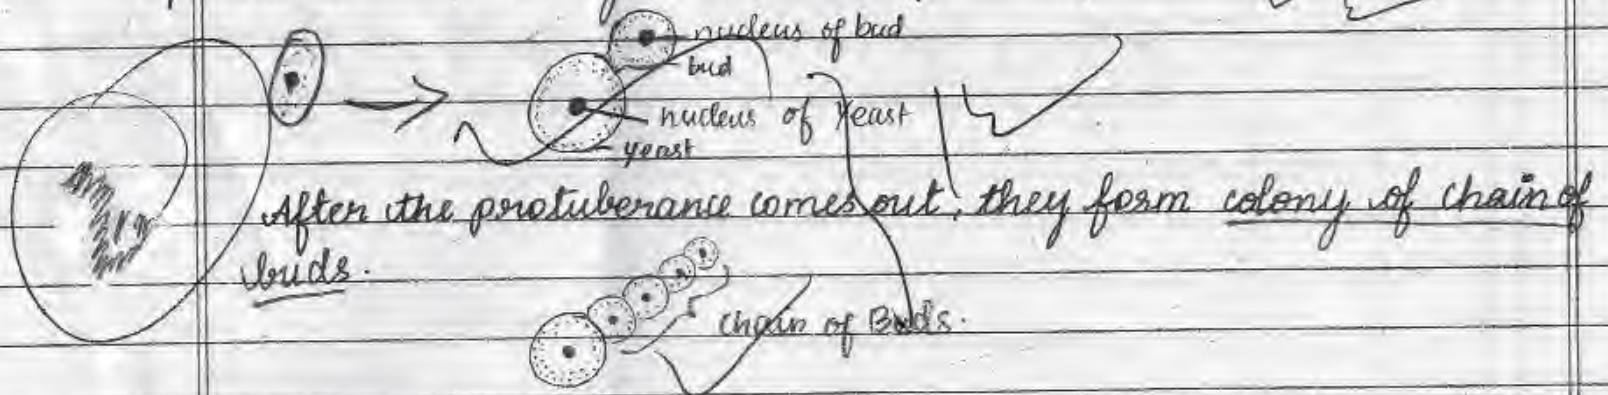 nucleus of bud
bud
nucleus of yeast
yeast
After the protuberance comes out, they form colony of chain of
buds.
Chain of Buds.